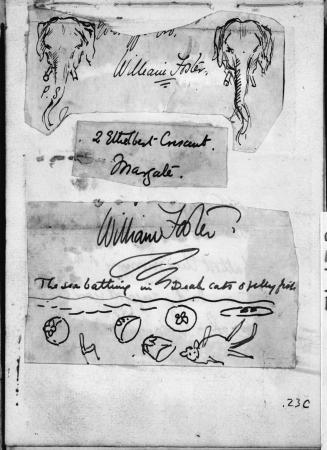 William Foster.
P.S
2 Ethelbert Crescent.
Margate.
William Foster
The sea bathing in Dead cats & jelly fish
.23C